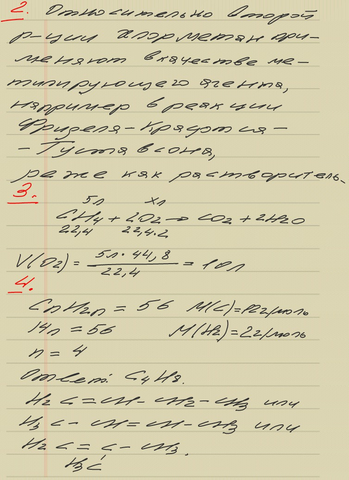 2. Относительно второй
р-ции хлорметан при-
меняют в качестве ме-
тилирующего агента,
например в реакции
Фриделя-Крафтса-
- Густавсона,
реже как растворитель.
3.
5л хл
CH4 + 2O2 → CO2 + 2H2O
22,4 22,4·2
V(O2) = 5л·44,8 / 22,4 = 10л
4.
CnH2n = 56 M(C)=12г/моль
14n = 56 M(H2)=2г/моль
n = 4
Ответ: C4H8.
H2C=CH-CH2-CH3 или
H3C-CH=CH-CH3 или
H2C=C-CH3.
H3C